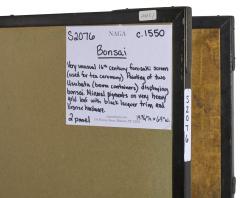 S2076 NAGA c.1550
Bonsai
Very unusual 16th century furosaki screen
(used for tea ceremony) Painting of two
Usubata (bronze containers) displaying
bonsai. Mineral pigments on very heavy
gold leaf with black lacquer trim and
bronze hardware.
2 panel
S2076